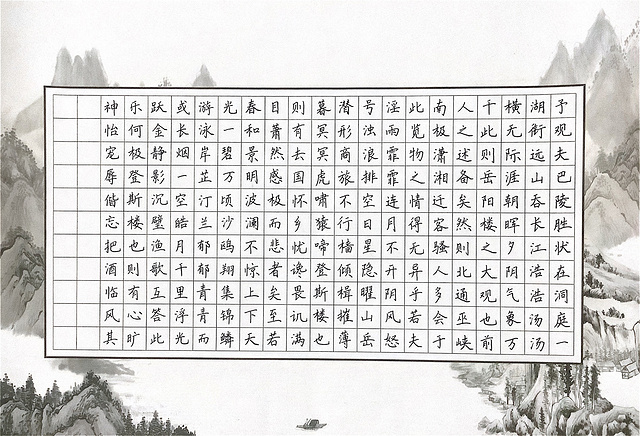 予观夫巴陵胜状在洞庭一
湖衔远山吞长江浩浩汤汤
横无际涯朝晖夕阴气象万
千此则岳阳楼之大观也前
人之述备矣然则北通巫峡
南极潇湘迁客骚人多会于
此览物之情得无异乎若夫
淫雨霏霏连月不开阴风怒
号浊浪排空日星隐曜山岳
潜形商旅不行樯倾楫摧薄
暮冥冥虎啸猿啼登斯楼也
则有去国怀乡忧谗畏讥满
目萧然感极而悲者矣至若
春和景明波澜不惊上下天
光一碧万顷沙鸥翔集锦鳞
游泳岸芷汀兰郁郁青青而
或长烟一空皓月千里浮光
跃金静影沉璧渔歌互答此
乐何极登斯楼也则有心旷
神怡宠辱偕忘把酒临风其